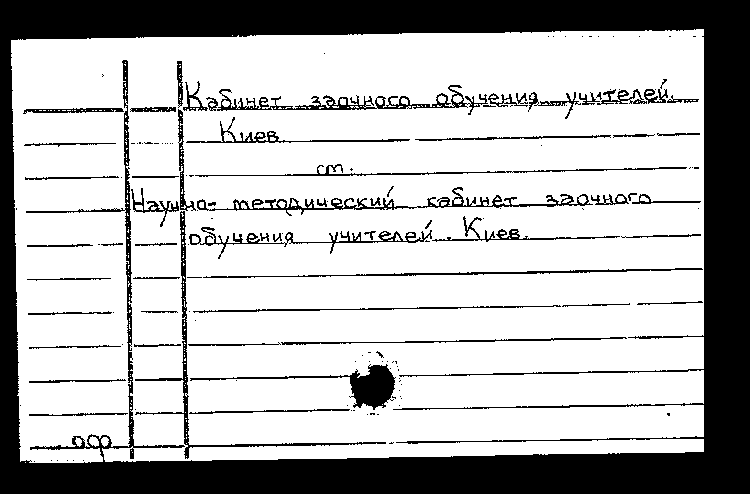 Кабинет заочного обучения учителей.
Киев
см.
Научно-методический кабинет заочного
обучения учителей. Киев.
оф